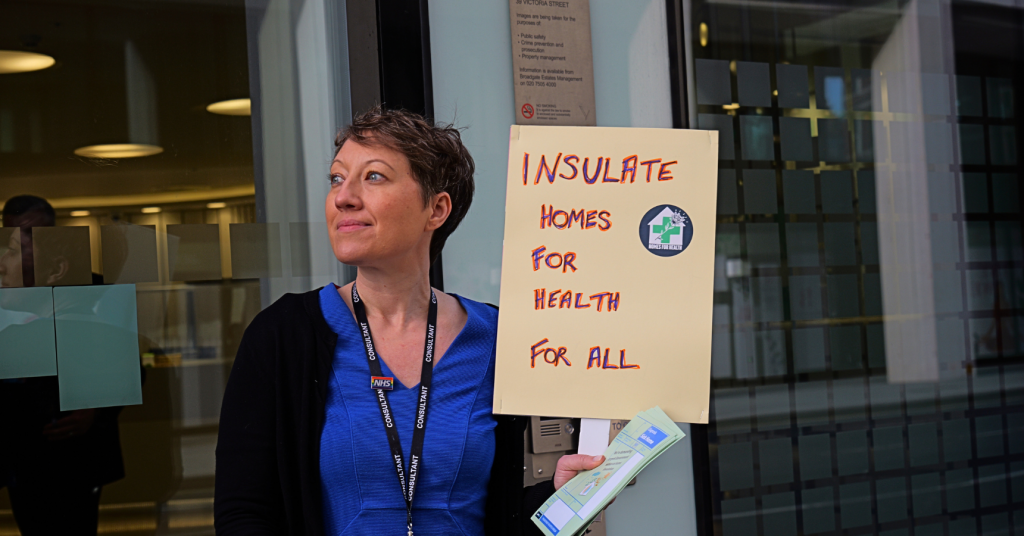 38 VICTORIA STREET
Images are being taken for the
purposes of:
• Public safety
• Crime prevention and
prosecution
• Property management
Information is available from
Broadgate Estates Management
INSULATE
HOMES
FOR
HEALTH
FOR ALL
HOMES FOR HEALTH
CONSULTANT
CONSULTANT
NHS
CONSULTANT
CONSULTANT
CONSULTANT
CONSULTANT